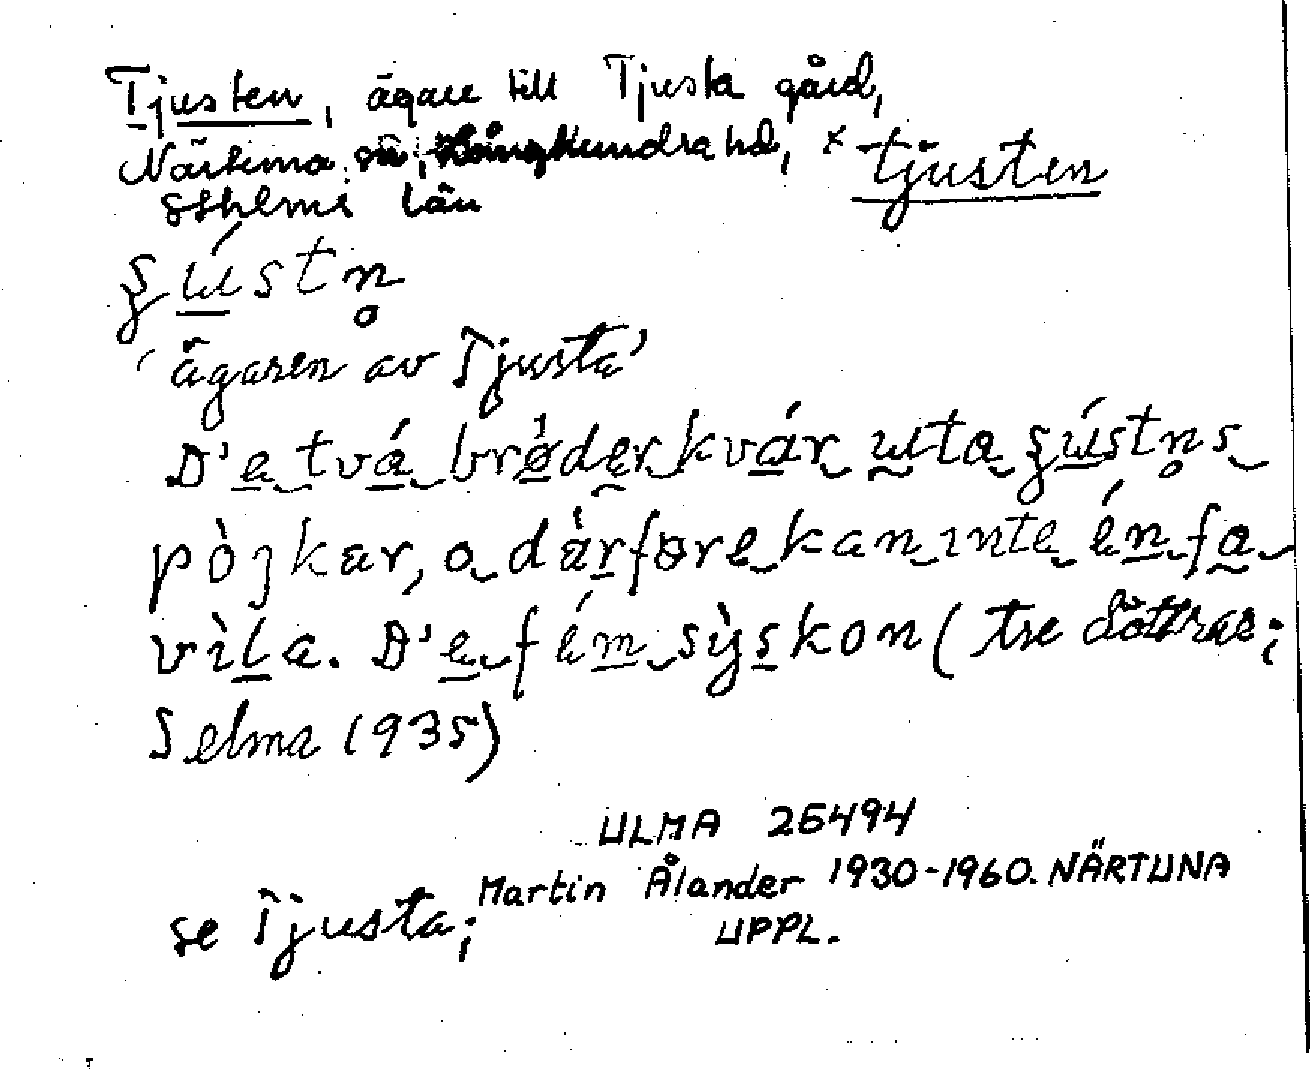 Tjusten, ägare till Tjusta gård,
Närtuna sn, Långhundra hd, × tjusten
Sthlms län
ʂústn̥
'ägaren av Tjusta'
D'e två brø̀der kvár uta ʂústn̥s
pòjkar, o dàrføre kan inte én fa
vìla. D'e fém sỳskon (tre döttrar;
Selma 1935)
ULMA 26494
Martin Ålander 1930-1960. NÄRTUNA
se Tjusta; UPPL.